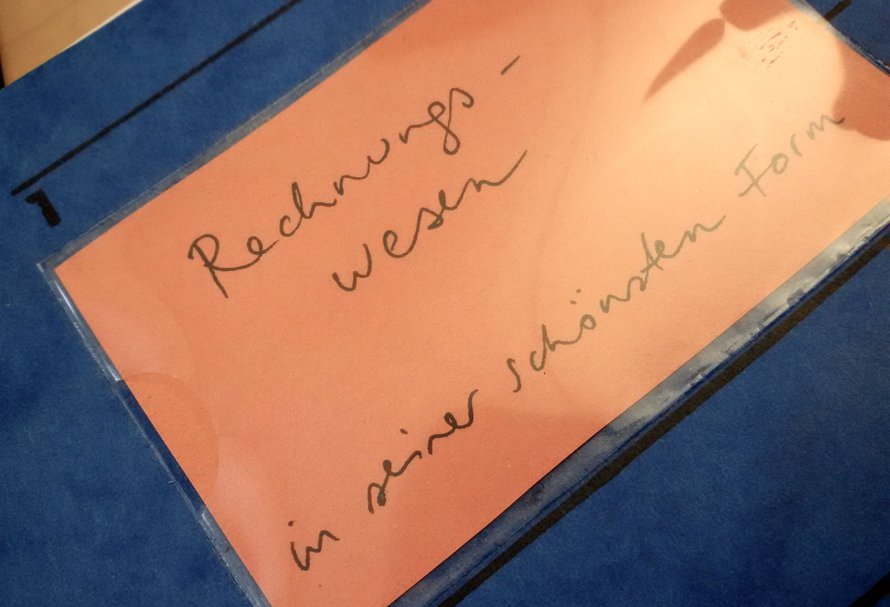 Rechnungs-
wesen
in seiner schönsten Form